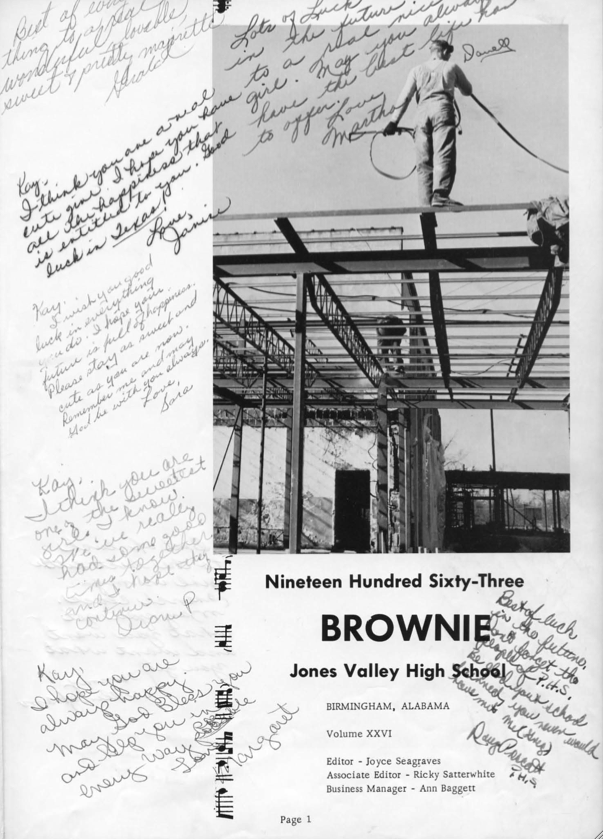 Best of
thing to
wonderful lovable
sweet & pretty majorette
Lots of Luck
in the future
to a real nice
girl. May you always
have the best life has
to offer.
Love
Martha
Kay,
I think you are a real
cute girl. I hope you have
all the happiness that
is entitled to you. Good
luck in Texas!
Love,
Janice
Kay,
I wish you good
luck in everything
you do. I hope your
future is full of happiness.
Please stay as sweet and
cute as you are now.
Remember me and may
God be with you always.
Love,
Kay,
I think you are
one of the sweetest
girls I know.
we really
had some good
times together
and I hope they
continue.
Diane P
Kay,
I hope you are
always happy.
May God bless you
and help you in
every way possible
Love
Margaret
Nineteen Hundred Sixty-Three
BROWNIE
Jones Valley High School
BIRMINGHAM, ALABAMA
Volume XXVI
Editor - Joyce Seagraves
Associate Editor - Ricky Satterwhite
Business Manager - Ann Baggett
Best of luck
in the future,
forget the
P.H.S.
school
you
Doug
P.H.S
Page 1